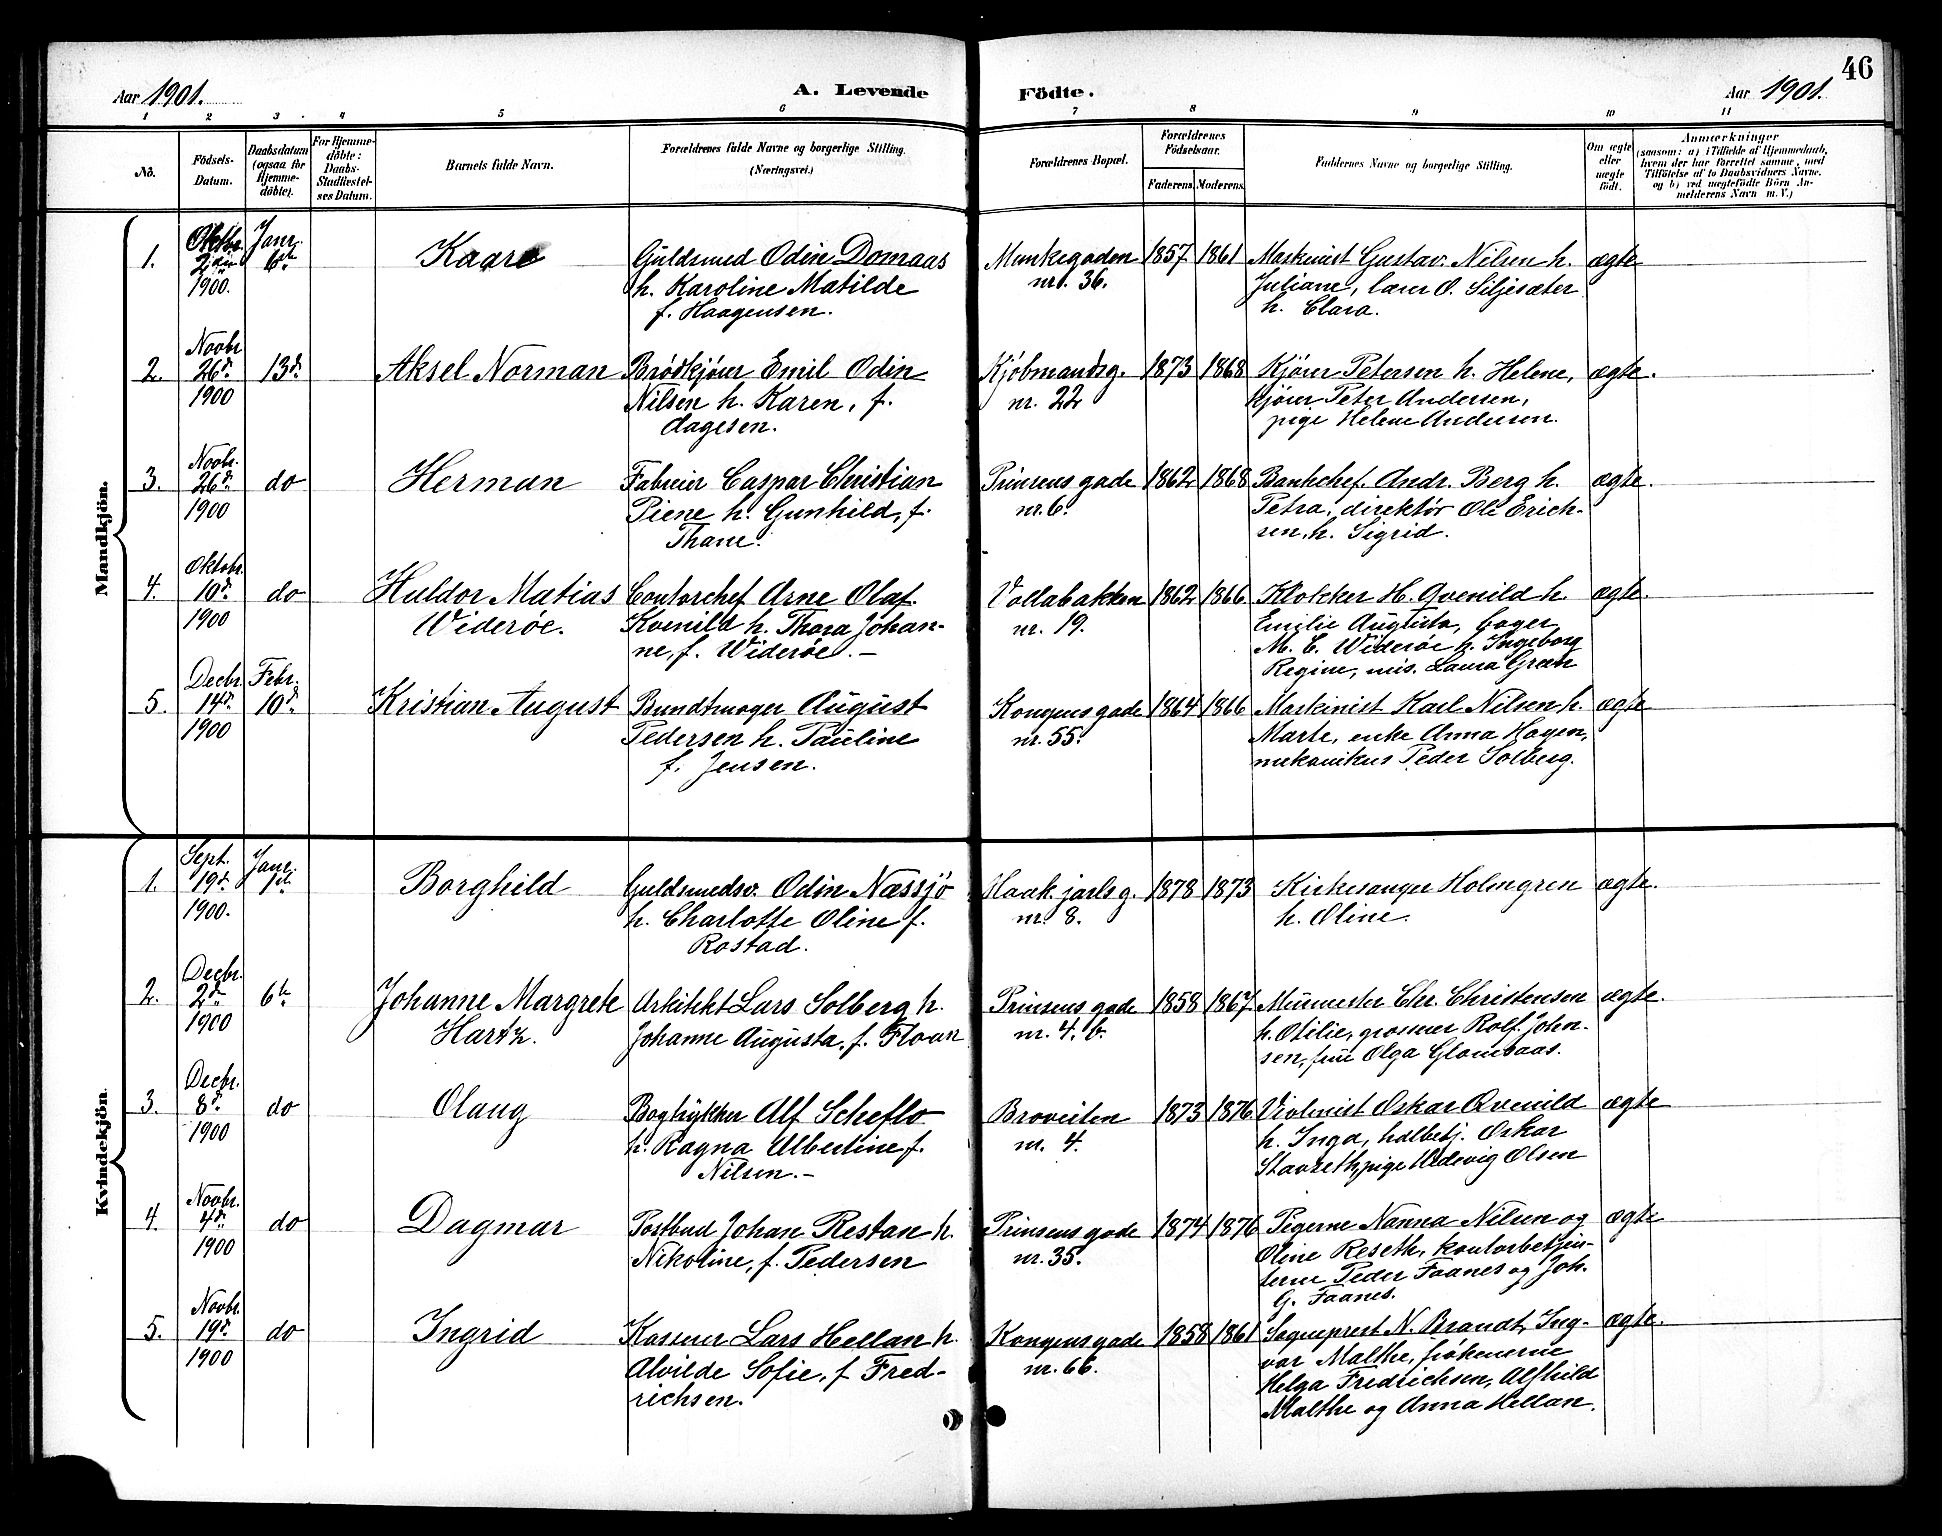 46
Aar 1901.
A. Levende
Födte.
Aar 1901.
1 2 3 4 5 6 7 8 9 10 11
No.
Födsels-
Datum.
Daabsdatum
(ogsaa for
Hjemme-
döbte).
For Hjemme-
döbte:
Daabs-
Stadfæstel-
ses Datum.
Barnets fulde Navn.
Forældrenes fulde Navne og borgerlige Stilling.
(Næringsvei.)
Forældrenes Bopæl.
Forældrenes
Födselsaar.
Faderens. Moderens.
Faddernes Navne og borgerlige Stilling.
Om ægte
eller
uægte
født.
Anmærkninger
(saasom: a) i Tilfælde af Hjemmedaab,
hvem der har forrettet samme, med
Tilföielse af to Daabsvidners Navne,
og b) ved uægtefödte Börn An-
melderens Navn m. V.)
Mandkjön.
1.
Oktbr.
2den
1900.
Janr.
6te
Kaare
Guldsmed Odin Domaas
h. Karoline Matilde
f. Haagensen.
Munkegaden
nr. 36.
1857
1861
Maskinist Gustav Nilsen h.
Juliane, lærer O. Siljesæter
h. Clara.
ægte
2.
Novbr
26d.
1900
13d.
Aksel Norman
Brødkjører Emil Odin
Nilsen h. Karen, f.
dagesen.
Kjöbmandsg.
nr. 22
1873
1868
Kjører Petersen h. Helene,
kjører Peter Andersen,
pige Helene Andersen.
ægte.
3.
Novbr.
26d.
1900
do
Herman
Fabrier Caspar Christian
Piene h. Gunhild, f.
Thane.
Prinsens gade
nr. 6.
1862
1868
Bankchef. Andr. Berg h.
Petra, direktør Ole Erich-
sen, h. Sigrid.
ægte.
4.
Oktobr.
10d.
1900
do
Huldor Matias
Widerøe.
Contorchef Arne Olaf
Kvenild h. Thora Johan-
ne, f. Widerøe. -
Vollabakken
nr. 19.
1862
1866
Klokker H. Qvenild h.
Emilie Augusta, bager
M. C. Widerøe h. Ingeborg
Regine, mis. Laura Gran
ægte.
5.
Decbr.
14d.
1900
Febr.
10d.
Kristian August
Bundtmager August
Pedersen h. Pauline
f. Jensen.
Kongens gade
nr. 55.
1864
1866
Maskinist Karl Nilsen h.
Marte, enke Anna Hagen,
mekanikus Peder Solberg.
ægte
Kvindekjön.
1.
Sept.
19d.
1900.
Janr.
1st.
Borghild
Guldsmedsv. Odin Næssjø
h. Charlotte Oline f.
Rostad.
Haak. jarls g.
nr. 8.
1878
1873
Kirkesanger Holmgren
h. Oline.
ægte.
2.
Decbr.
2d.
1900
6te
Johanne Margrete
Hartz.
Arkitekt Lars Solberg h.
Johanne Augusta, f. Floan
Prinsens gade
nr. 4. b.
1858
1867
Murmester Chr. Christensen
h. Otilie, grosserer Rolf John-
sen, fru Olga Glomsaas.
ægte.
3.
Decbr.
8d.
1900
do
Olaug
Bogtrykker Alf Scheflo
h. Ragna Albertine, f.
Nilsen. -
Broveiten
nr. 4.
1873
1876
Violinist Oskar Qvenild
h. Inga, hdlbetj. Oskar
Stavseth, pige Hedevig Olsen
ægte
4.
Novbr.
4d.
1900
do
Dagmar
Postbud Johan Restan h.
Nikoline, f. Pedersen
Prinsens gade
nr. 35.
1874
1876
Pigerne Nanna Nilsen og
Oline Reseth, kontorbetjen-
terne Peder Faanes og Joh.
G. Faanes.
ægte
5.
Novbr.
19d.
1900
do
Ingrid
Kasserer Lars Hellan h.
Alvilde Sofie, f. Fred-
richsen.
Kongens gade
nr. 66.
1858
1861
Sogneprest N. Brandt, Ing-
var Malthe, frøkenerne
Helga Fredrichsen, Alfhild
Malthe og Anna Hellan.
ægte.